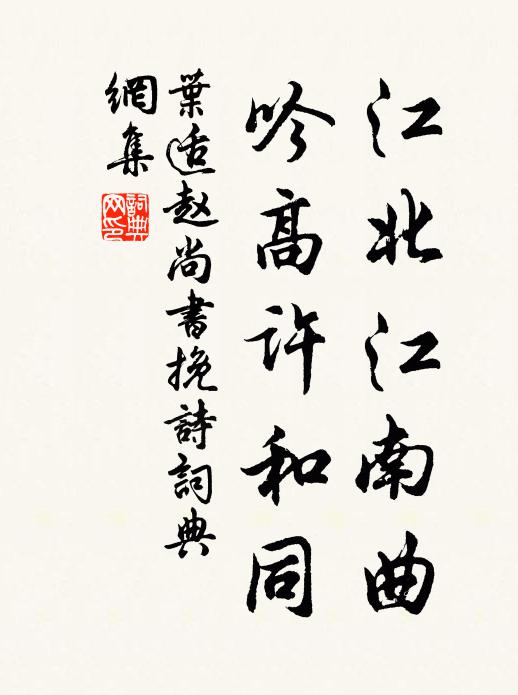 江北江南曲
吟高許和同
葉适赵尚書挽詩詞典
網集
詞典网印